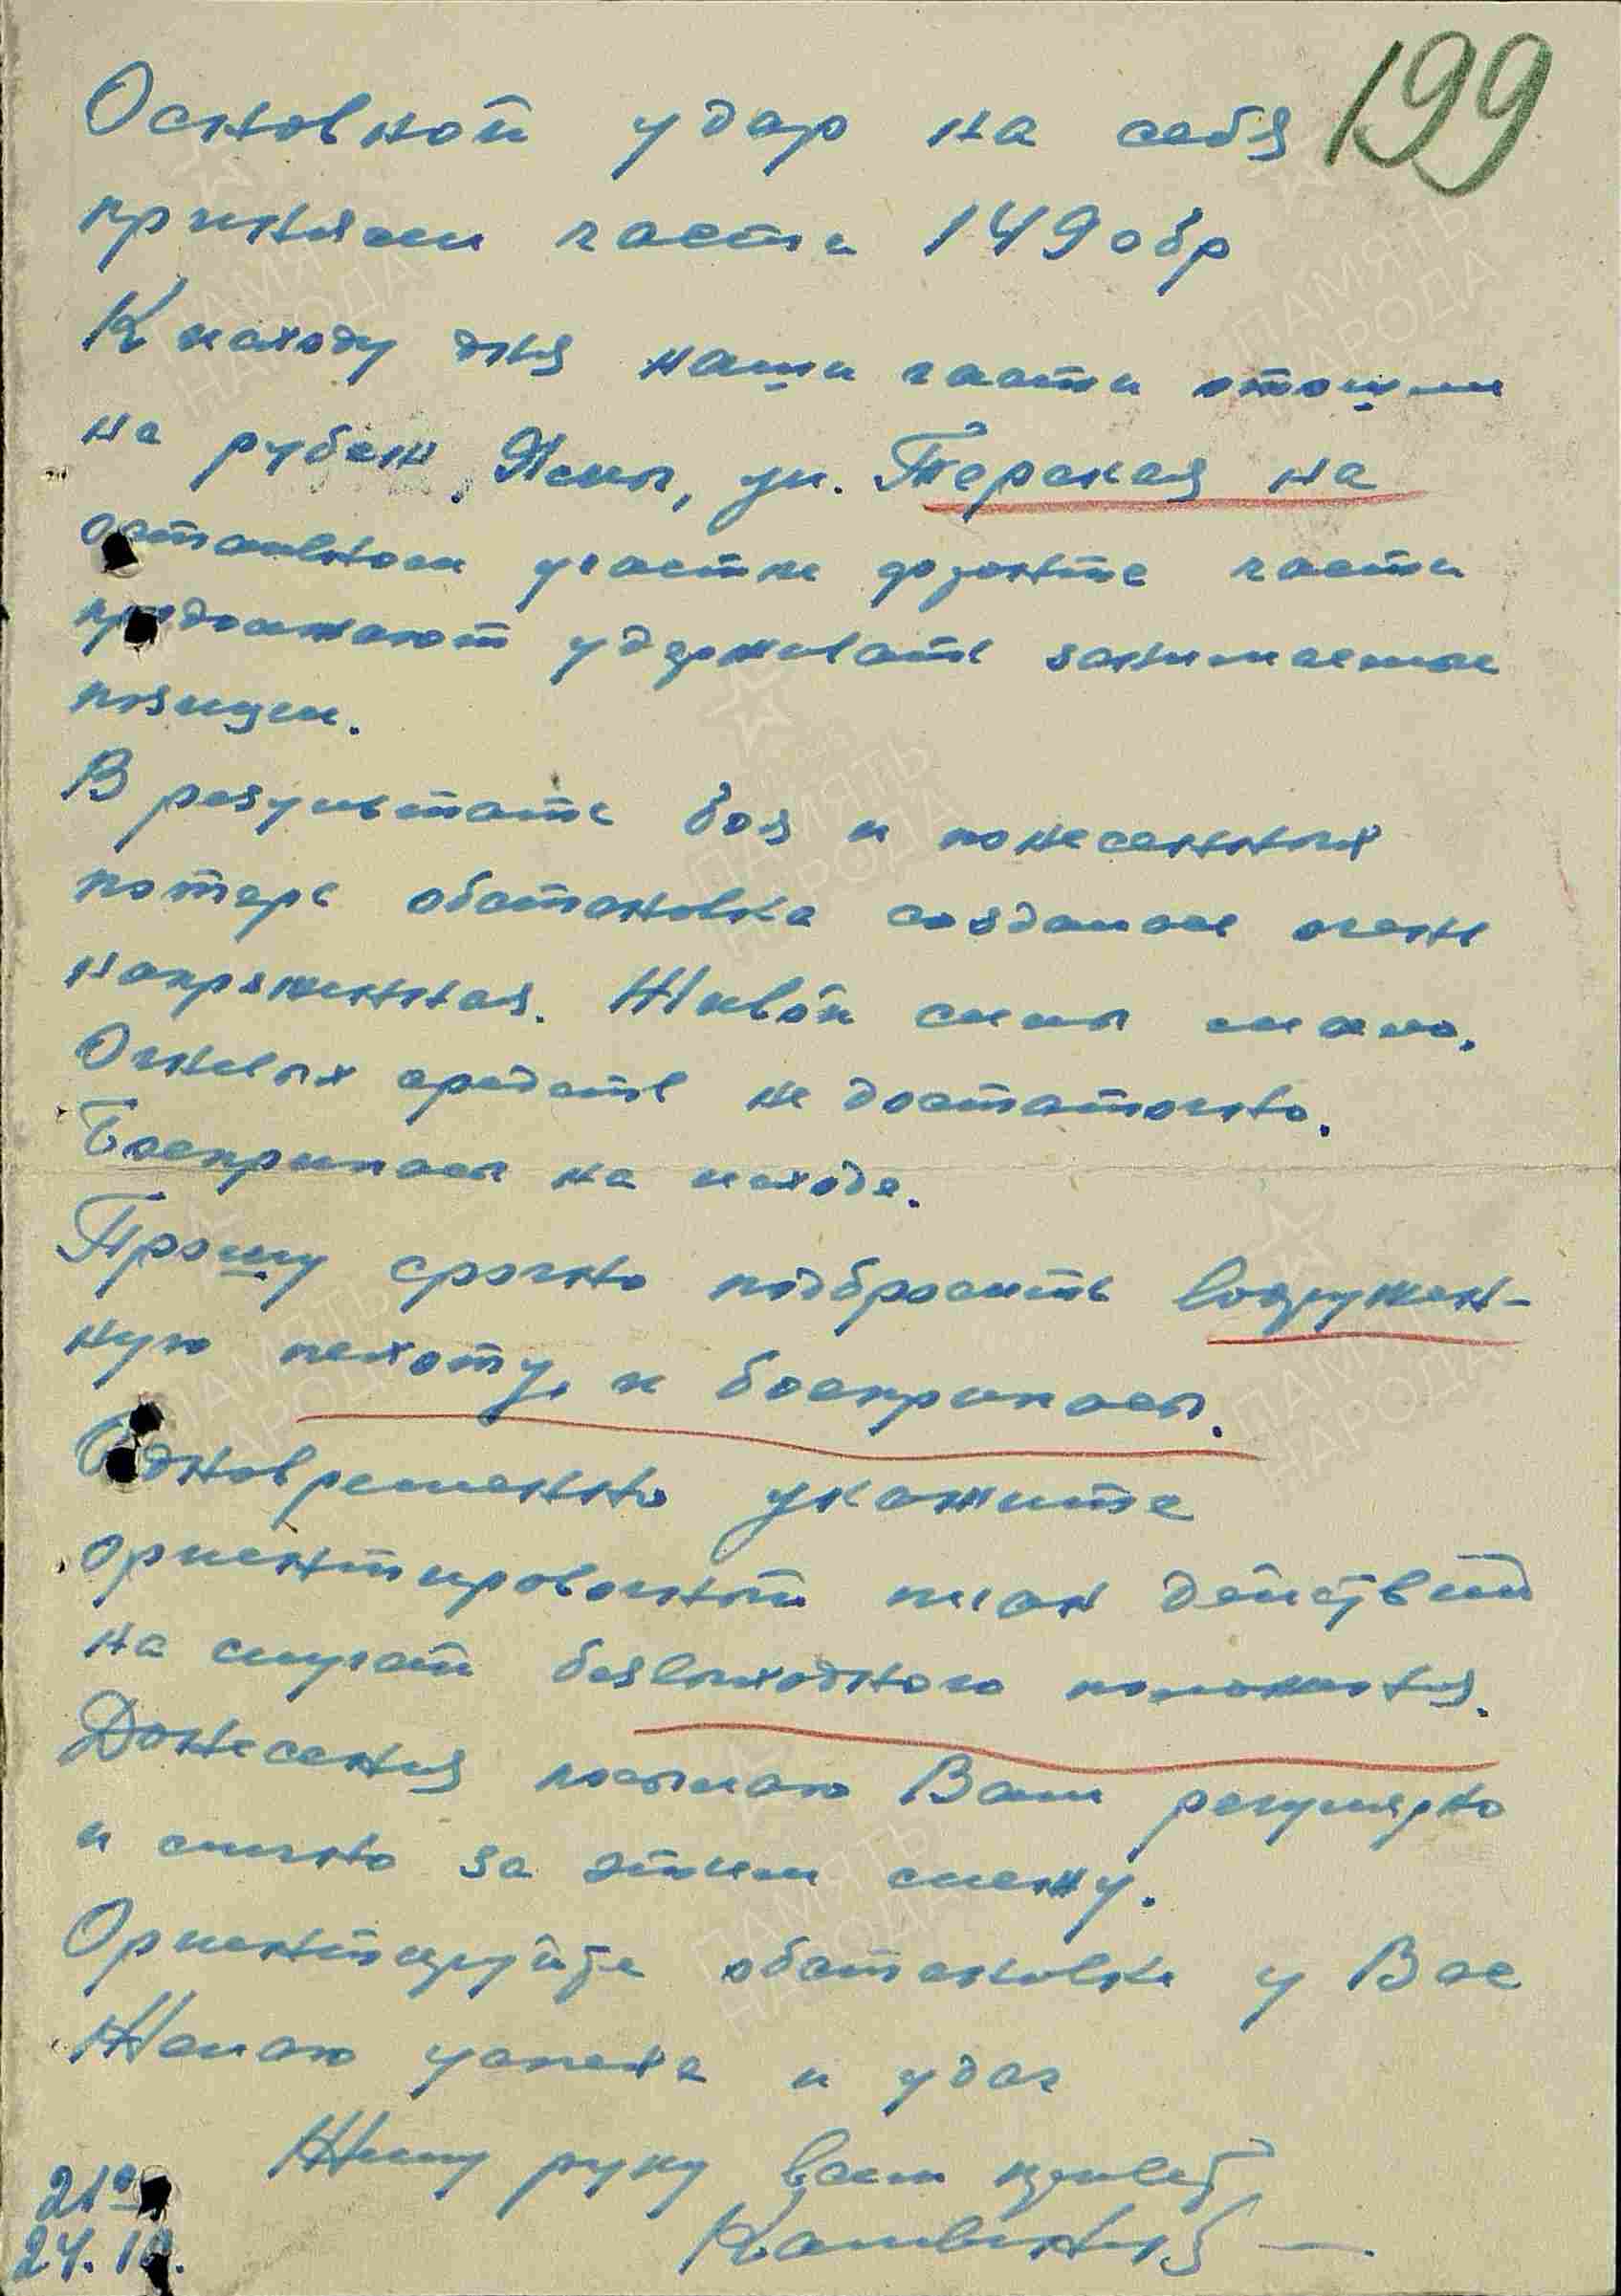 199
Основной удар на себя
приняли части 149 обр
К исходу дня наши части отошли
на рубеж Ясли, ул. Терская на
остальном участке фронта части
продолжают удерживать занимаемые
позиции.
В результате боя и понесенных
потерь обстановка создалась очень
напряженная. Живой силы мало.
Огневых средств не достаточно.
Боеприпасы на исходе.
Прошу срочно подбросить вооружен-
ную пехоту, и боеприпасы.
Одновременно укажите
ориентировочный план действий
на случай безвыходного положения.
Донесения посылаю Вам регулярно
и лично за этим слежу.
Ориентируйте обстановке у Вас
Желаю успеха и удач
Жму руку всем привет
21
24.10.
ПАМЯТЬ
НАРОДА